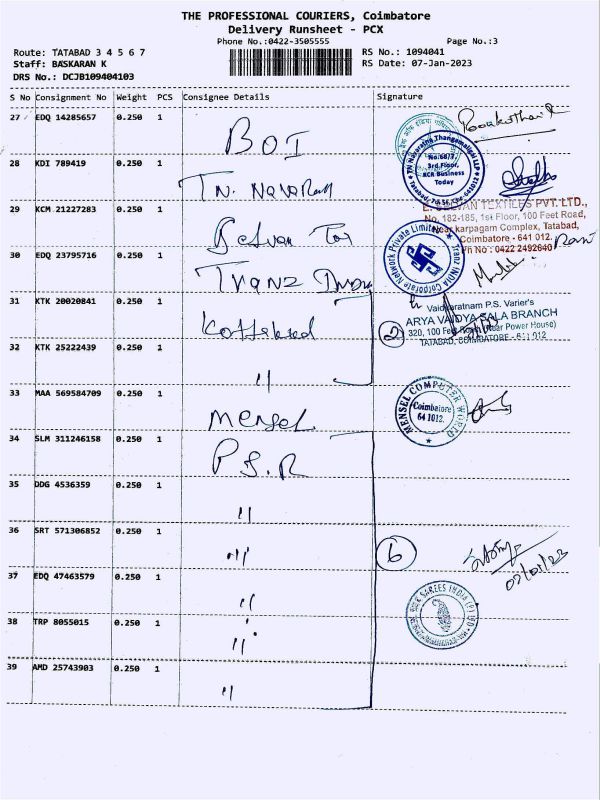 THE PROFESSIONAL COURIERS, Coimbatore
Delivery Runsheet - PCX
Phone No.:0422-3505555
Page No.:3
Route: TATABAD 3 4 5 6 7
RS No.: 1094041
Staff: BASKARAN K
RS Date: 07-Jan-2023
DRS No.: DCJB109404103
S No Consignment No Weight PCS Consignee Details Signature
27 EDQ 14285657 0.250 1 BOI
28 KDI 789419 0.250 1 TN. Navarat
No:68/3,
3rd Floor,
ACR Business
Today
29 KCM 21227283 0.250 1 Selvan Tex
TEXTILES PVT. LTD.,
No. 182-185, 1st Floor, 100 Feet Road,
Near karpagam Complex, Tatabad,
Coimbatore - 641 012.
Ph No : 0422 2492640
30 EDQ 23795716 0.250 1 Tranz
Tranz INDIA Corporate Network Private Limited
31 KTK 20020841 0.250 1 Kottakkal
Vaidyaratnam P.S. Varier's
ARYA VAIDYA SALA BRANCH
320, 100 Feet Road, (Near Power House)
TATABAD, COIMBATORE - 641 012
2
32 KTK 25222439 0.250 1 "
33 MAA 569584709 0.250 1 Mensel
MENSEL COMPUTER WORLD
Coimbatore
641012.
34 SLM 311246158 0.250 1 P.S.R
35 DDG 4536359 0.250 1 "
36 SRT 571306852 0.250 1 "
6
07/01/23
37 EDQ 47463579 0.250 1 "
SAREES INDIA (P) LTD
38 TRP 8055015 0.250 1 "
39 AMD 25743903 0.250 1 "